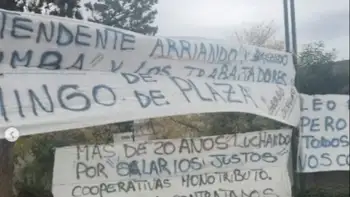 TENDENTE ARRIANDO Y
UMBA" Y LOS TRABAJADORES
DE
MINGO DE PLAZA
MÁS DE 20 AÑOS LUCHANDO
POR SALARIOS JUSTOS
COOPERATIVAS MONOTRIBUTO.
CONTRATADOS
LEO
PERO
TODOS
VOS CO